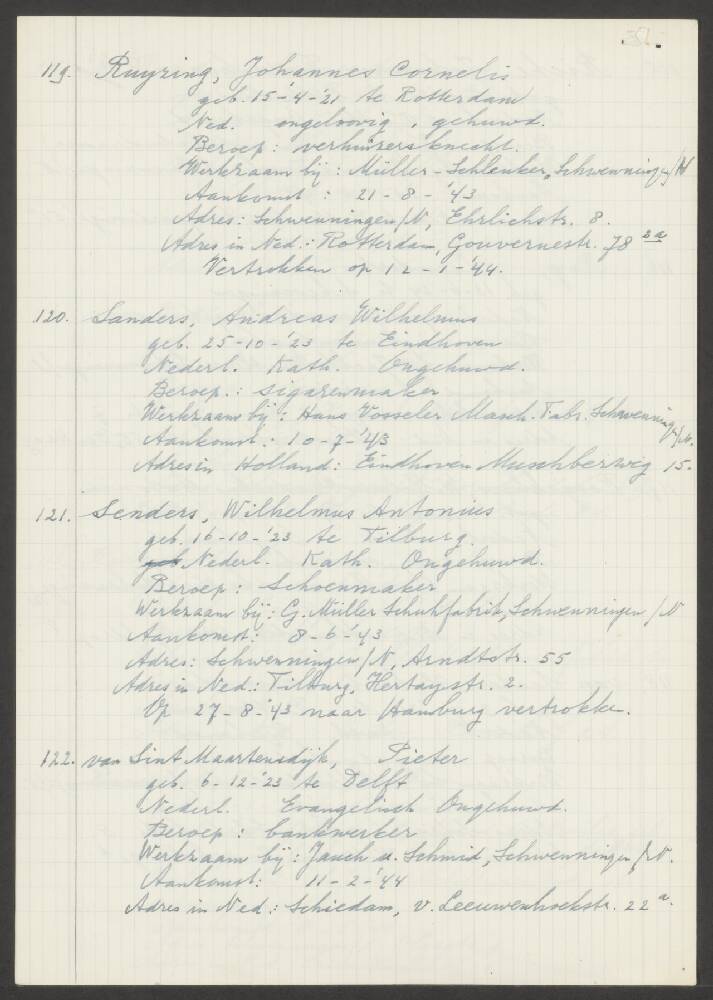 119. Ruyzing, Johannes Cornelis
geb. 15-4-'21 te Rotterdam
Ned. ongeloovig, gehuwd.
Beroep: verhuizersknecht.
Werkzaam bij: Müller-Schlenker, Schwenningen/N
Aankomst: 21-8-'43
Adres: Schwenningen/N, Ehrlichstr. 8.
Adres in Ned.: Rotterdam, Gouvernestr. 78
Vertrokken op 12-1-'44.
120. Sanders, Andreas Wilhelmus
geb. 25-10-'23 te Eindhoven
Nederl. Kath. Ongehuwd.
Beroep.: sigarenmaker
Werkzaam bij: Hans Vosseler Masch. Fabr. Schwenningen/N.
Aankomst.: 10-7-'43
Adres in Holland: Eindhoven Muschbergweg 15.
121. Senders, Wilhelmus Antonius
geb. 16-10-'23 te Tilburg.
geb Nederl. Kath. Ongehuwd.
Beroep: Schoenmaker
Werkzaam bij: Gg. Müller Schuhfabrik, Schwenningen/N
Aankomst: 8-6-'43
Adres: Schwenningen/N, Arndtstr. 55
Adres in Ned.: Tilburg, 2.
Op 27-8-'43 naar Hamburg vertrokken.
122. van Sint Maartensdijk, Pieter
geb. 6-12-'23 te Delft
Nederl. Evangelisch Ongehuwd.
Beroep: bankwerker
Werkzaam bij: Jauch u. Schmid, Schwenningen/N.
Aankomst: 11-2-'44
Adres in Ned.: Schiedam, v. Leeuwenhoekstr. 22 a.